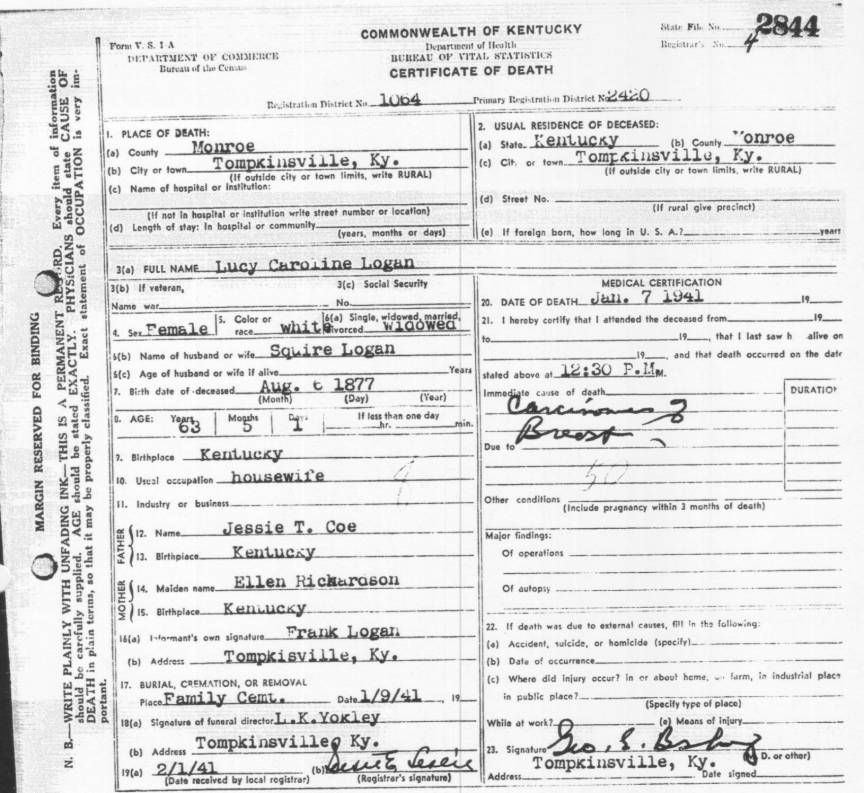 COMMONWEALTH OF KENTUCKY
State File No. 2844
Form V. S. 1-A
Department of Health
Registrar's No. 4
DEPARTMENT OF COMMERCE
BUREAU OF VITAL STATISTICS
Bureau of the Census
CERTIFICATE OF DEATH
Registration District No. 1064 Primary Registration District No. 2420
MARGIN RESERVED FOR BINDING
N. B.—WRITE PLAINLY WITH UNFADING INK—THIS IS A PERMANENT RECORD. Every item of information
should be carefully supplied. AGE should be stated EXACTLY. PHYSICIANS should state CAUSE OF
DEATH in plain terms, so that it may be properly classified. Exact statement of OCCUPATION is very im-
portant.
1. PLACE OF DEATH:
(a) County Monroe
(b) City or town Tompkinsville, Ky.
(If outside city or town limits, write RURAL)
(c) Name of hospital or institution:
(If not in hospital or institution write street number or location)
(d) Length of stay: In hospital or community
(years, months or days)
2. USUAL RESIDENCE OF DECEASED:
(a) State Kentucky (b) County Monroe
(c) City or town Tompkinsville, Ky.
(If outside city or town limits, write RURAL)
(d) Street No.
(If rural give precinct)
(e) If foreign born, how long in U. S. A.? years
3(a) FULL NAME Lucy Caroline Logan
3(b) If veteran, 3(c) Social Security
Name war No.
4. Sex Female 5. Color or race white 6(a) Single, widowed, married, divorced widowed
6(b) Name of husband or wife Squire Logan
6(c) Age of husband or wife if alive Years
7. Birth date of deceased Aug. 6 1877
(Month) (Day) (Year)
8. AGE: Years Months Days If less than one day
63 5 1 hr. min.
9. Birthplace Kentucky
10. Usual occupation housewife
11. Industry or business
FATHER
12. Name Jessie T. Coe
13. Birthplace Kentucky
MOTHER
14. Maiden name Ellen Richardson
15. Birthplace Kentucky
16(a) Informant's own signature Frank Logan
(b) Address Tompkisville, Ky.
17. BURIAL, CREMATION, OR REMOVAL
Place Family Cemt. Date 1/9/41, 19
18(a) Signature of funeral director L.K.Yokley
(b) Address Tompkinsville, Ky.
19(a) 2/1/41 (b)
(Date received by local registrar) (Registrar's signature)
MEDICAL CERTIFICATION
20. DATE OF DEATH Jan. 7 1941 19
21. I hereby certify that I attended the deceased from 19
to 19, that I last saw h alive on
19, and that death occurred on the date
stated above at 12:30 P.M. M.
Immediate cause of death DURATION
Carcinoma of
Breast
Due to
50
Other conditions
(Include pregnancy within 3 months of death)
Major findings:
Of operations
Of autopsy
22. If death was due to external causes, fill in the following:
(a) Accident, suicide, or homicide (specify)
(b) Date of occurrence
(c) Where did injury occur? in or about home, on farm, in industrial place
in public place?
(Specify type of place)
While at work? (e) Means of injury
23. Signature Geo. E. (M. D. or other)
Tompkinsville, Ky.
Address Date signed